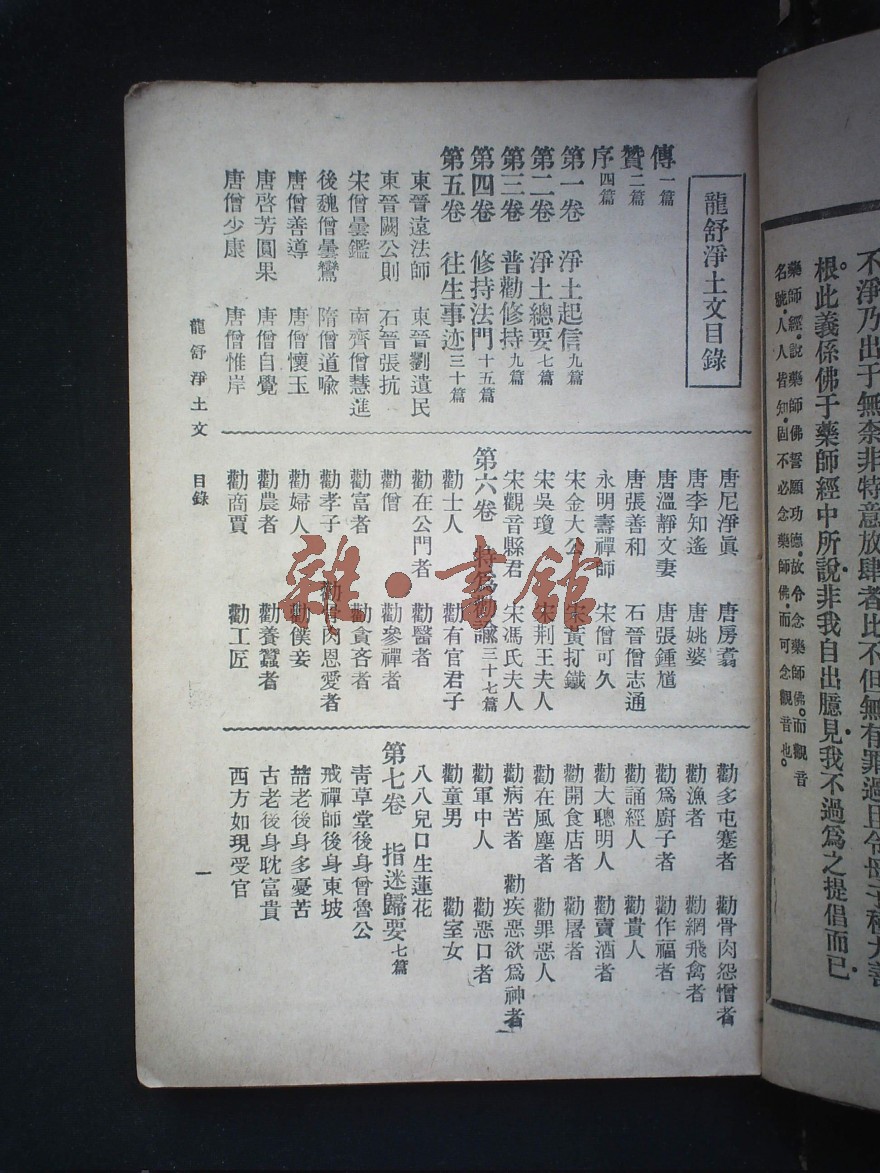 不淨乃出于無柰非特意放肆者比不但無有罪過且令
根此義係佛于藥師經中所說非我自出臆見我不過為之提倡而已
藥師經說藥師佛誓願功德故令念藥師佛而觀音
名號人人皆知固不必念藥師佛而可念觀音也
龍舒淨土文目錄
傳一篇
贊二篇
序四篇
第一卷 淨土起信九篇
第二卷 淨土總要七篇
第三卷 普勸修持九篇
第四卷 修持法門十五篇
第五卷 往生事迹三十篇
東晉遠法師 東晉劉遺民
東晉闕公則 石晉張抗
宋僧曇鑑 南齊僧慧進
後魏僧曇鸞 隋僧道喩
唐僧善導 唐僧懷玉
唐啓芳圓果 唐僧自覺
唐僧少康 唐僧惟岸
唐尼淨眞 唐房翥
唐李知遙 唐姚婆
唐溫靜文妻 唐張鍾馗
唐張善和 石晉僧志通
永明壽禪師 宋僧可久
宋金大公 宋黃打鐵
宋吳瓊 宋荆王夫人
宋觀音縣君 宋馮氏夫人
第六卷 特為勸諭三十七篇
勸士人 勸有官君子
勸在公門者 勸醫者
勸僧 勸參禪者
勸富者 勸貪吝者
勸孝子 勸骨肉恩愛者
勸婦人 勸僕妾
勸農者 勸養蠶者
勸商賈 勸工匠
勸多屯蹇者 勸骨肉怨憎者
勸漁者 勸網飛禽者
勸為廚子者 勸作福者
勸誦經人 勸貴人
勸大聰明人 勸賣酒者
勸開食店者 勸屠者
勸在風塵者 勸罪惡人
勸病苦者 勸疾惡欲為神者
勸軍中人 勸惡口者
勸童男 勸室女
八八兒口生蓮花
第七卷 指迷歸要七篇
靑草堂後身曾魯公
戒禪師後身東坡
喆老後身多憂苦
古老後身耽富貴
西方如現受官
龍舒淨土文 目錄 一
雜·書館